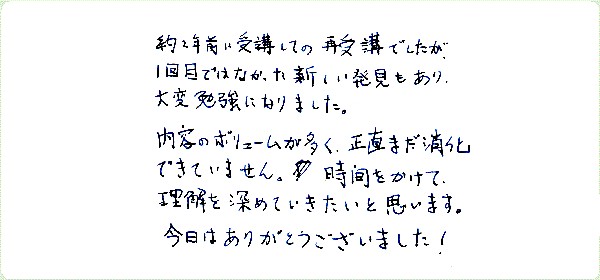 約2年前に受講しての再受講でしたが、
1回目ではなかった新しい発見もあり、
大変勉強になりました。
内容のボリュームが多く、正直まだ消化
できていません。時間をかけて、
理解を深めていきたいと思います。
今日はありがとうございました！